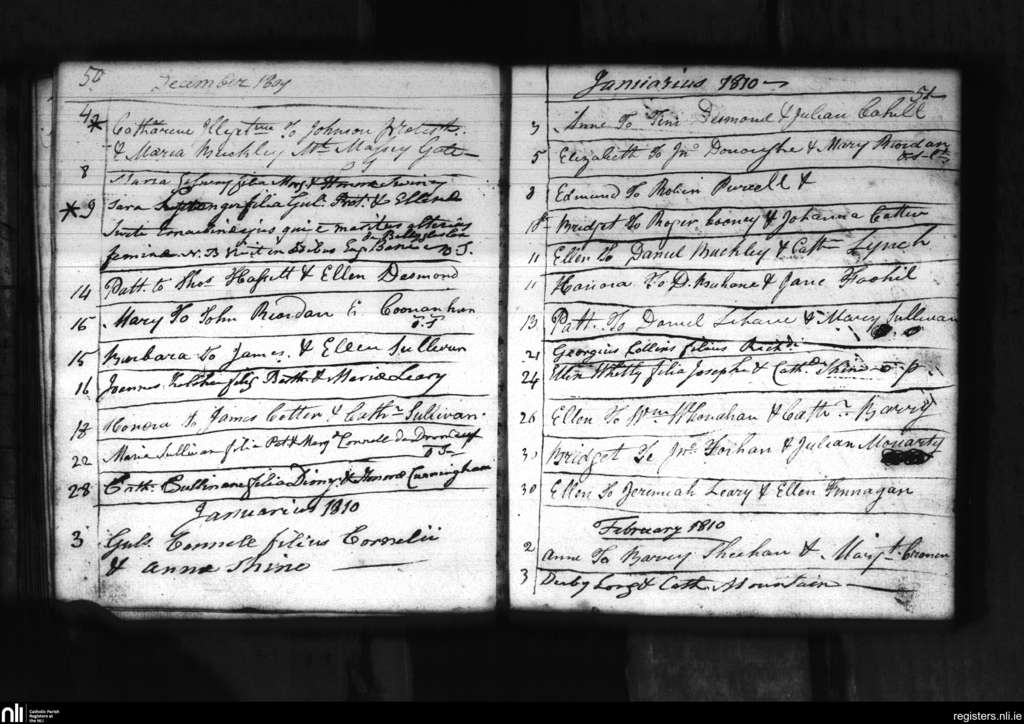 50 December 1809
4 * Catharine Illegtme To Johnson Protest.
& Maria Buckley Mt Massy Gate
8 Maria filia & Honora
* 9 Sara filia Gul: Prot. & Ellenæ
14 Patt. to Thos Hassett & Ellen Desmond
15 Mary To John Riordan & Coonanhan
15 Barbara to James & Ellen Sullivan
16 Joannes filig Barth: & Mariæ Leary
18 Honora to James Cotter & Cathn Sullivan
22 Maria Sullivan filia Pat & Margt Connell De
28 Cath: Cullinane filia Dionys & Honoræ Cunningham
Januarius 1810
3 Gul: Connell filius Cornelii
& Annæ Shine
Januarius 1810
51
3 Anne To Tim Desmond & Julian Cahill
5 Elizabeth To Jno Donoughe & Mary Riordan
8 Edmund To Robin Purcell &
10 Bridget To Roger Looney & Johanna Cotter
11 Ellen To Daniel Buckley & Cathn Lynch
11 Honora To D. Mahone & Jane
13 Patt. To Daniel Lehane & Mary Sullivan
21 Georgius Collins filius Richdi
24 Ellen Whelty filia Josephi & Cathn Shine
26 Ellen To Wm & Cathn Barry
30 Bridget To Jno Forhan & Julian Moriarty
30 Ellen To Jeremiah Leary & Ellen Finnagan
February 1810
2 Anne To Barvey Sheehan & Margt Cronen
3 Derby Long & Cath: Mountain
nli
Catholic Parish
Registers at
the NLI
registers.nli.ie